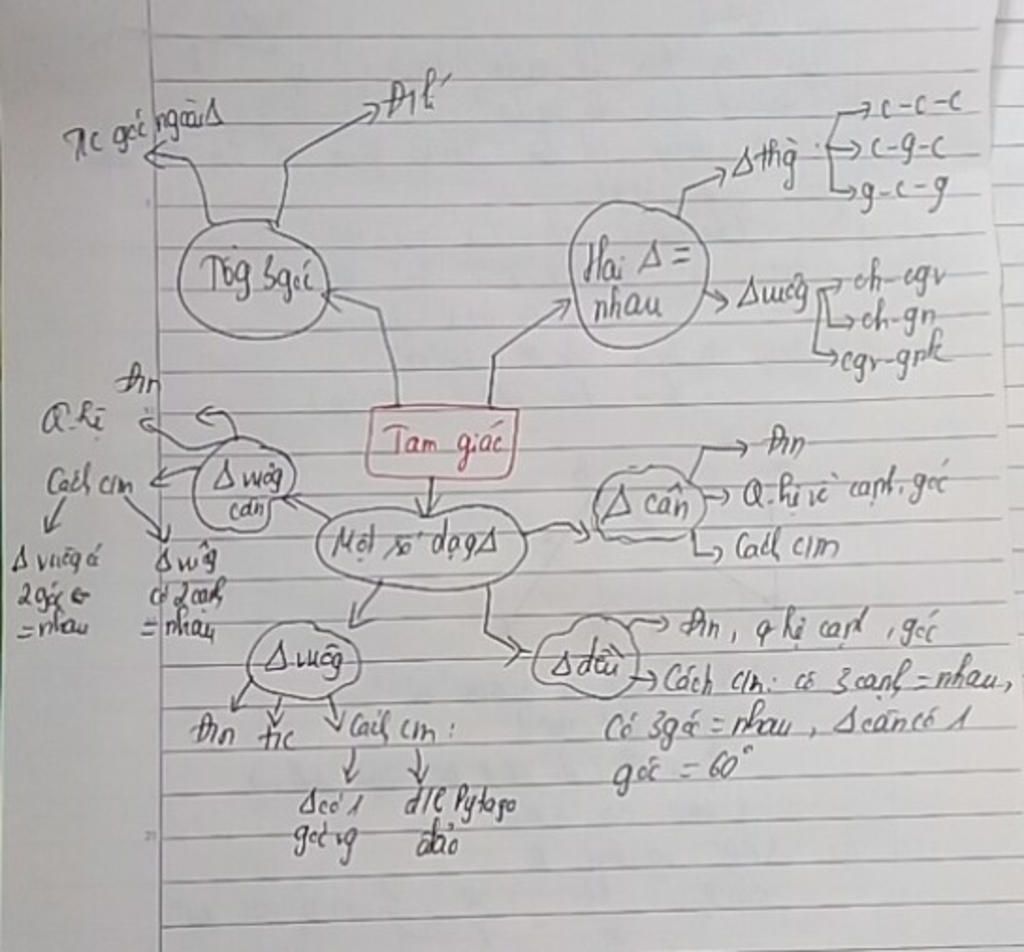 T/c góc ngoài Δ
Đ lí
Tổg 3 góc
Hai Δ =
nhau
Δ thg
c-c-c
c-g-c
g-c-g
Δ vuôg
ch-cgv
ch-gn
cgv-gnk
Tam giác
Đn
Q.hệ
Cách c/m
Δ vuôg
cân
Δ vuôg có
2 góc
= nhau
Δ vuôg
có 2 cạnh
= nhau
Một số dạg Δ
Δ cân
Đn
Q.hệ về cạnh, góc
Cách c/m
Δ đều
Đn, q hệ cạnh, góc
Cách c/m: có 3 cạnh = nhau,
Có 3 góc = nhau, Δ cân có 1
góc = 60°
Δ vuôg
Đn
t/c
Cách cm:
Δ có 1
góc vg
đ/l Pytago
đảo